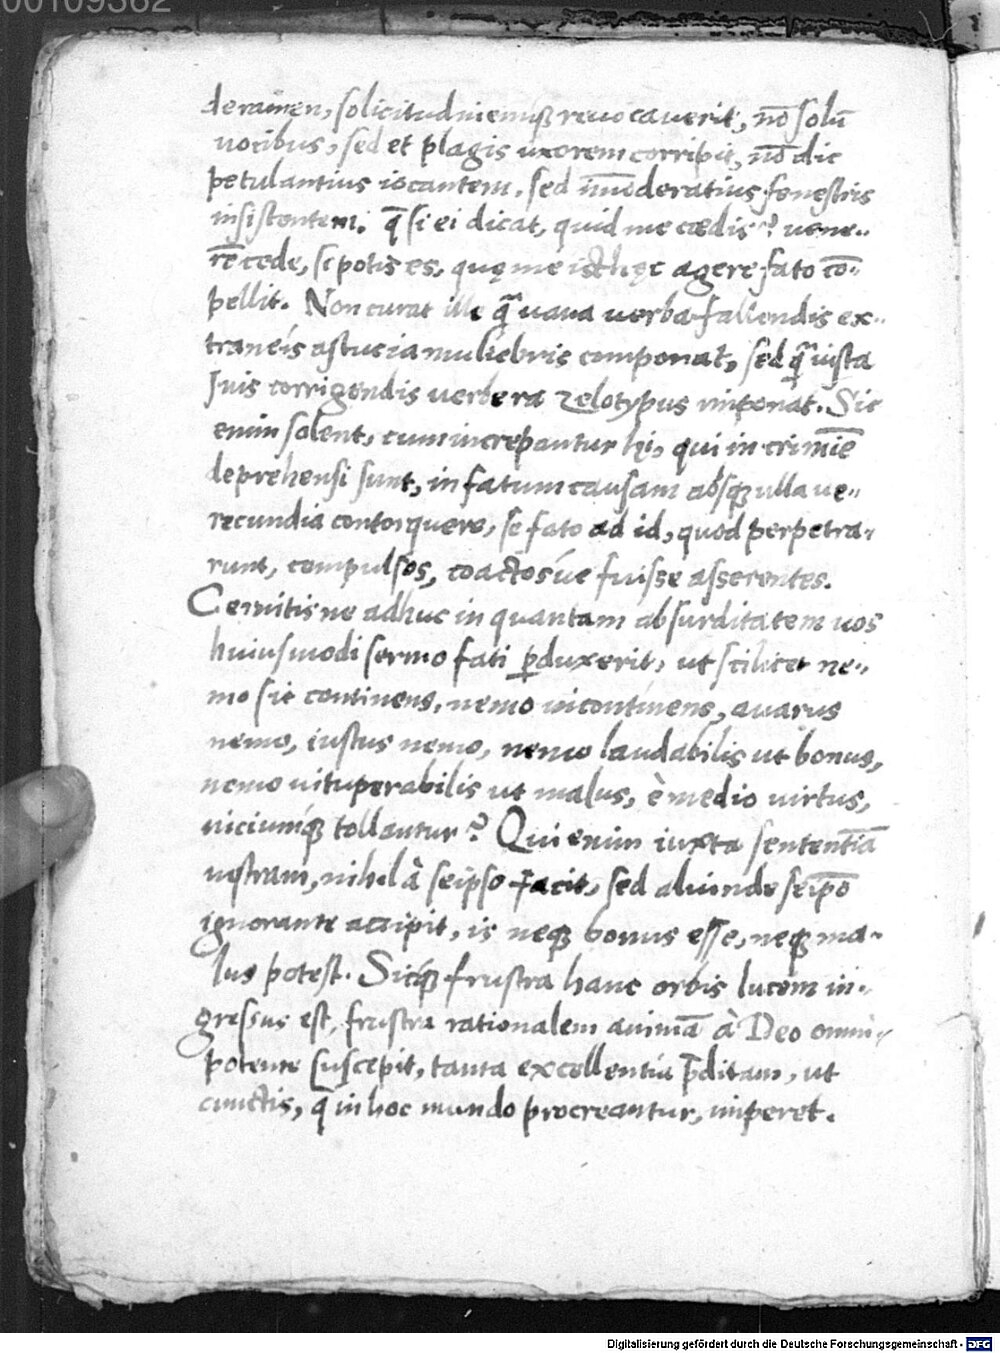 00109362
deramen, solicitudinemq́ꝫ reuocauerit, nō solū
uocibus, sed et plagis uxorem corripit, nō dic
petulantius iocantem, sed im̄oderatius fenestris
insistentem. q̄ si ei dicat, quid me cædis? uene-
rē cede, si potis es, quę me isthęc agere fato cō-
pellit. Non curat ille q̄ uana uerba fallendis ex-
traneis astucia muliebris componat, sed q̄ iusta
suis corrigendis uerbera zelotypus imponat. Sic
enim solent, cum increpantur hi, qui in crimīe
deprehensi sunt, in fatum causam absqꝫ ulla ue-
recundia contorquere, se fato ad id, quod perpetra-
runt, compulsos, coactosúe fuisse asserentes.
Cernitis ne adhuc in quantam absurditatem uos
huiusmodi sermo fati ꝑduxerit, ut scilicet ne-
mo sit continens, nemo incontinens, auarus
nemo, iustus nemo, nemo laudabilis ut bonus,
nemo uituperabilis ut malus, è medio uirtus,
uiciumq́ꝫ tollantur? Qui enim iuxta sententiā
uestram, nihil à seipso facit, sed aliunde seipō
ignorante accipit, is neqꝫ bonus esse, neqꝫ ma-
lus potest. Sicq́ꝫ frustra hanc orbis lucem in-
gressus est, frustra rationalem animā à Deo omni-
potente suscepit, tanta excellentia p̄ditam, ut
cunctis, q̄ in hoc mundo procreantur, imperet.
Digitalisierung gefördert durch die Deutsche Forschungsgemeinschaft - DFG